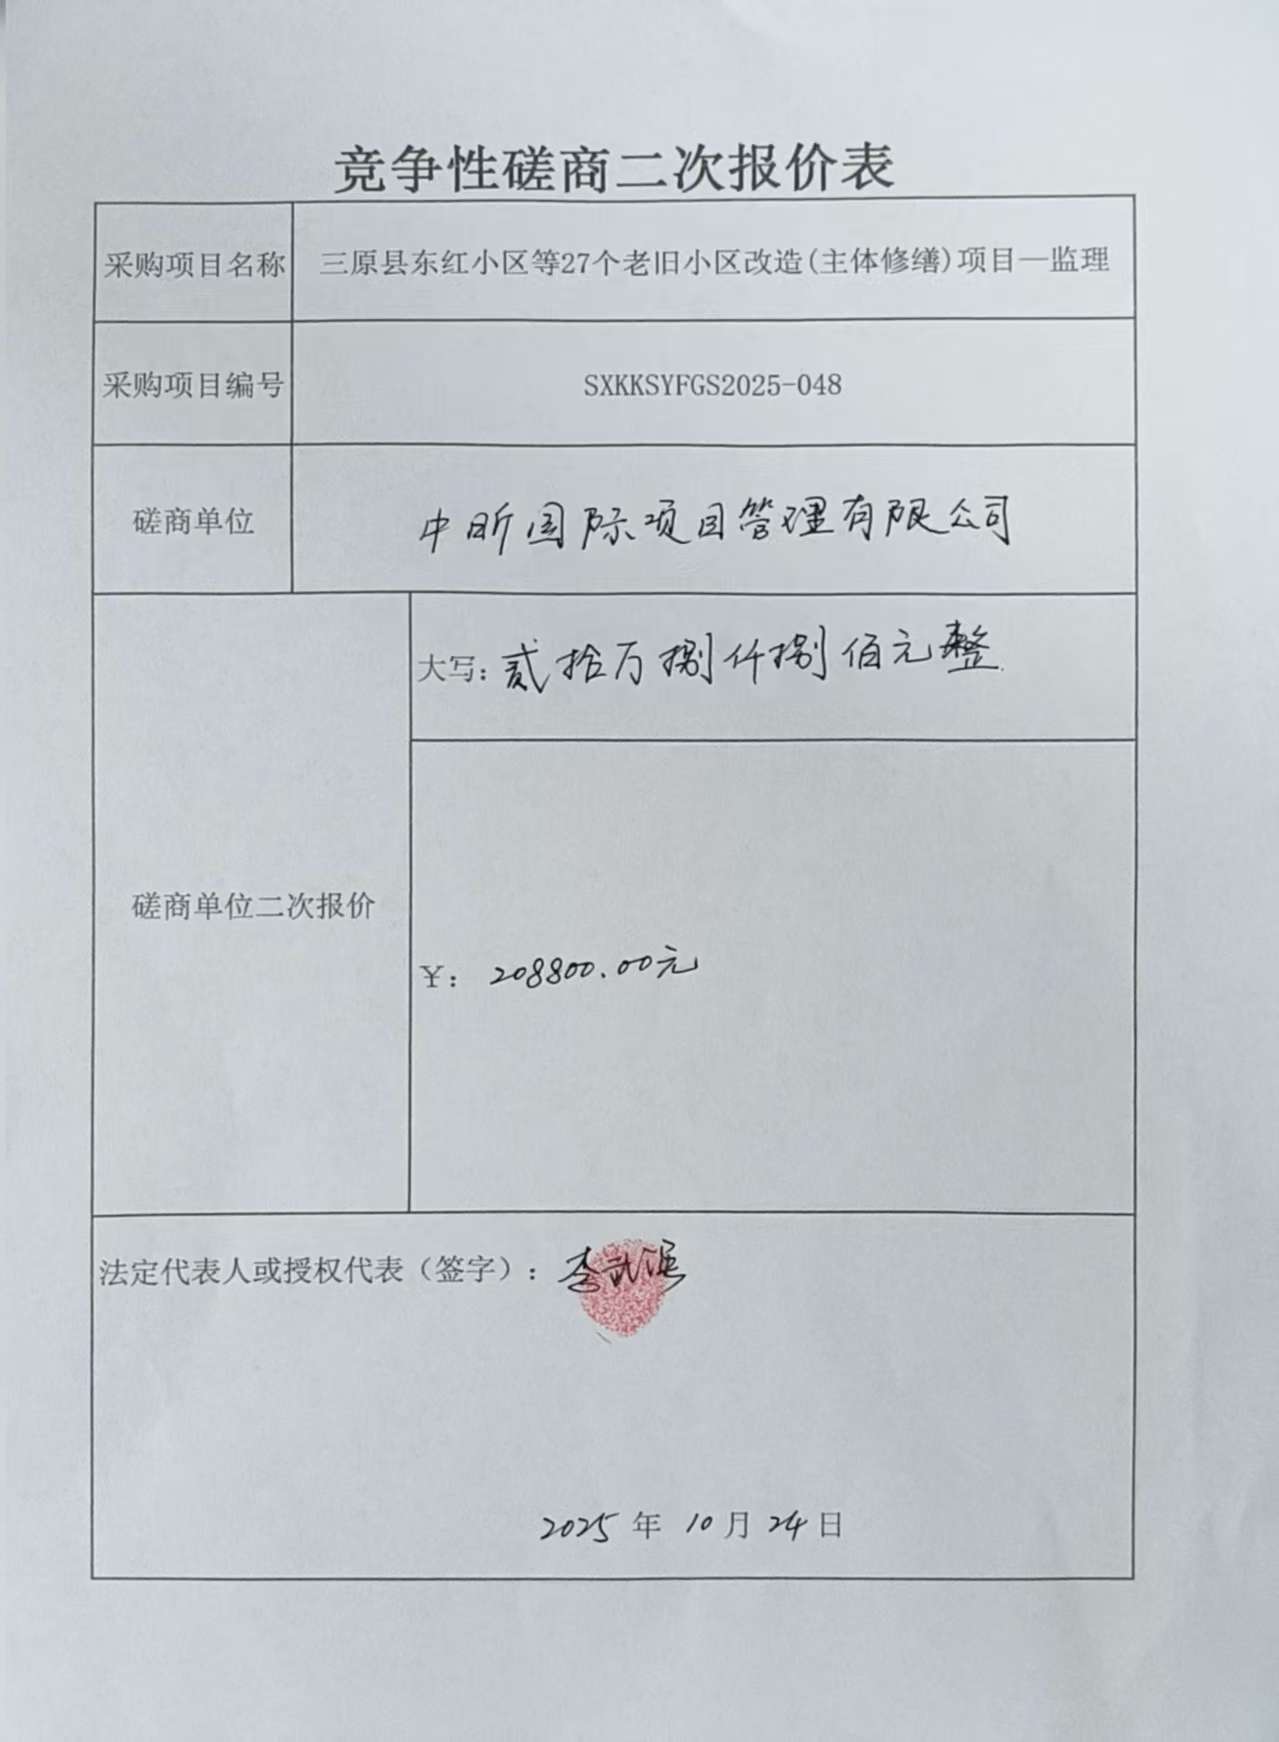 竞争性磋商二次报价表
采购项目名称 三原县东红小区等27个老旧小区改造(主体修缮)项目—监理
采购项目编号 SXKKSYFGS2025-048
磋商单位 中昕国际项目管理有限公司
大写：贰拾万捌仟捌佰元整
磋商单位二次报价
¥： 208800.00元
法定代表人或授权代表（签字）：李武强
2025年10月24日